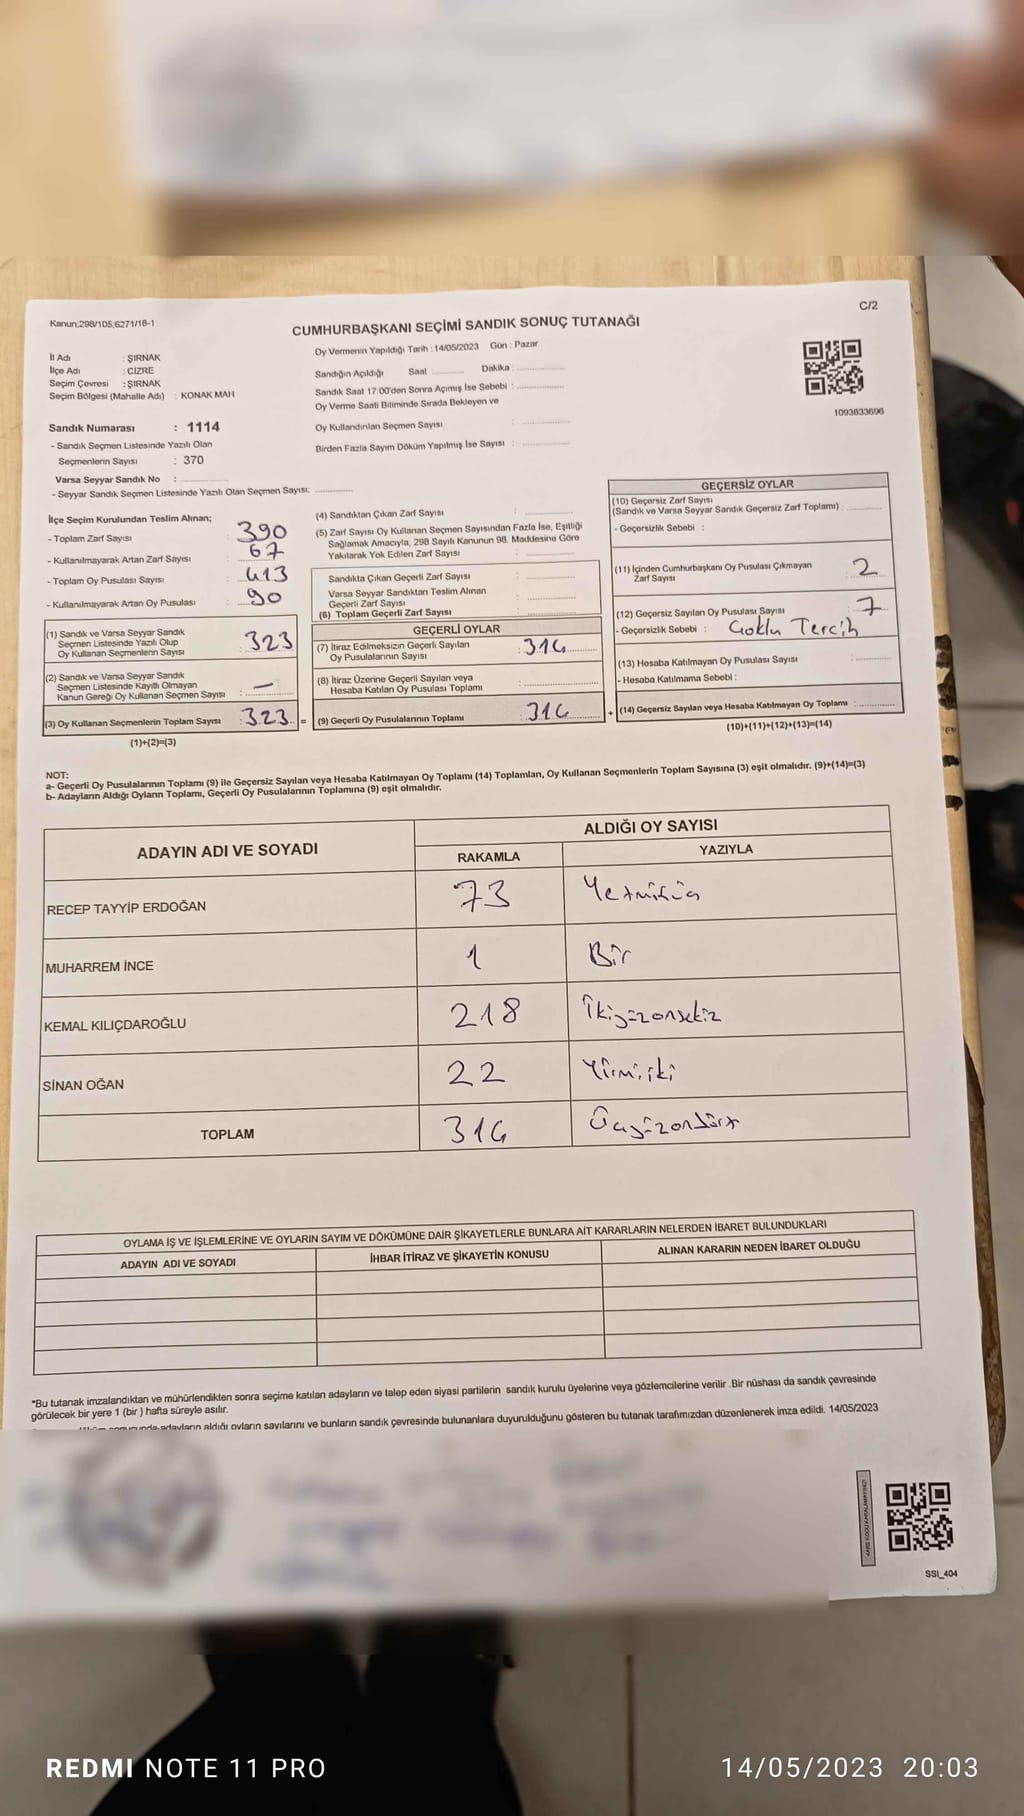 Kanun;298/105;6271/18-1
C/2
CUMHURBAŞKANI SEÇİMİ SANDIK SONUÇ TUTANAĞI
İl Adı : ŞIRNAK
İlçe Adı : CİZRE
Seçim Çevresi : ŞIRNAK
Seçim Bölgesi (Mahalle Adı) : KONAK MAH
Sandık Numarası : 1114
- Sandık Seçmen Listesinde Yazılı Olan
Seçmenlerin Sayısı : 370
Varsa Seyyar Sandık No :
- Seyyar Sandık Seçmen Listesinde Yazılı Olan Seçmen Sayısı:
Oy Vermenin Yapıldığı Tarih : 14/05/2023 Gün : Pazar
Sandığın Açıldığı Saat Dakika :
Sandık Saat 17.00'den Sonra Açımış İse Sebebi :
Oy Verme Saati Bitiminde Sırada Bekleyen ve
Oy Kullandırılan Seçmen Sayısı :
Birden Fazla Sayım Döküm Yapılmış İse Sayısı :
1093833696
İlçe Seçim Kurulundan Teslim Alınan;
- Toplam Zarf Sayısı : 390
- Kullanılmayarak Artan Zarf Sayısı : 67
- Toplam Oy Pusulası Sayısı : 413
- Kullanılmayarak Artan Oy Pusulası : 90
(1) Sandık ve Varsa Seyyar Sandık
Seçmen Listesinde Yazılı Olup
Oy Kullanan Seçmenlerin Sayısı : 323
(2) Sandık ve Varsa Seyyar Sandık
Seçmen Listesinde Kayıtlı Olmayan
Kanun Gereği Oy Kullanan Seçmen Sayısı : —
(3) Oy Kullanan Seçmenlerin Toplam Sayısı : 323 =
(1)+(2)=(3)
(4) Sandıktan Çıkan Zarf Sayısı :
(5) Zarf Sayısı Oy Kullanan Seçmen Sayısından Fazla İse, Eşitliği
Sağlamak Amacıyla, 298 Sayılı Kanunun 98. Maddesine Göre
Yakılarak Yok Edilen Zarf Sayısı :
Sandıkta Çıkan Geçerli Zarf Sayısı :
Varsa Seyyar Sandıktan Teslim Alınan
Geçerli Zarf Sayısı :
(6) Toplam Geçerli Zarf Sayısı :
GEÇERLİ OYLAR
(7) İtiraz Edilmeksizin Geçerli Sayılan
Oy Pusulalarının Sayısı : 314
(8) İtiraz Üzerine Geçerli Sayılan veya
Hesaba Katılan Oy Pusulası Toplamı :
(9) Geçerli Oy Pusulalarının Toplamı : 314 +
GEÇERSİZ OYLAR
(10) Geçersiz Zarf Sayısı
(Sandık ve Varsa Seyyar Sandık Geçersiz Zarf Toplamı) :
- Geçersizlik Sebebi :
(11) İçinden Cumhurbaşkanı Oy Pusulası Çıkmayan
Zarf Sayısı : 2
(12) Geçersiz Sayılan Oy Pusulası Sayısı : 7
- Geçersizlik Sebebi : Çoklu Tercih
(13) Hesaba Katılmayan Oy Pusulası Sayısı :
- Hesaba Katılmama Sebebi :
(14) Geçersiz Sayılan veya Hesaba Katılmayan Oy Toplamı :
(10)+(11)+(12)+(13)=(14)
NOT:
a- Geçerli Oy Pusulalarının Toplamı (9) ile Geçersiz Sayılan veya Hesaba Katılmayan Oy Toplamı (14) Toplamları, Oy Kullanan Seçmenlerin Toplam Sayısına (3) eşit olmalıdır. (9)+(14)=(3)
b- Adayların Aldığı Oyların Toplamı, Geçerli Oy Pusulalarının Toplamına (9) eşit olmalıdır.
ADAYIN ADI VE SOYADI
ALDIĞI OY SAYISI
RAKAMLA YAZIYLA
RECEP TAYYİP ERDOĞAN 73 Yetmişüç
MUHARREM İNCE 1 Bir
KEMAL KILIÇDAROĞLU 218 İkiyüzonsekiz
SİNAN OĞAN 22 Yirmiiki
TOPLAM 314 Üçyüzondört
OYLAMA İŞ VE İŞLEMLERİNE VE OYLARIN SAYIM VE DÖKÜMÜNE DAİR ŞİKAYETLERLE BUNLARA AİT KARARLARIN NELERDEN İBARET BULUNDUKLARI
ADAYIN ADI VE SOYADI İHBAR İTİRAZ VE ŞİKAYETİN KONUSU ALINAN KARARIN NEDEN İBARET OLDUĞU
*Bu tutanak imzalandıktan ve mühürlendikten sonra seçime katılan adayların ve talep eden siyasi partilerin sandık kurulu üyelerine veya gözlemcilerine verilir .Bir nüshası da sandık çevresinde
görülecek bir yere 1 (bir ) hafta süreyle asılır.
adayların aldığı oyların sayılarını ve bunların sandık çevresinde bulunanlara duyurulduğunu gösteren bu tutanak tarafımızdan düzenlenerek imza edildi. 14/05/2023
SSI_404
REDMI NOTE 11 PRO
14/05/2023 20:03